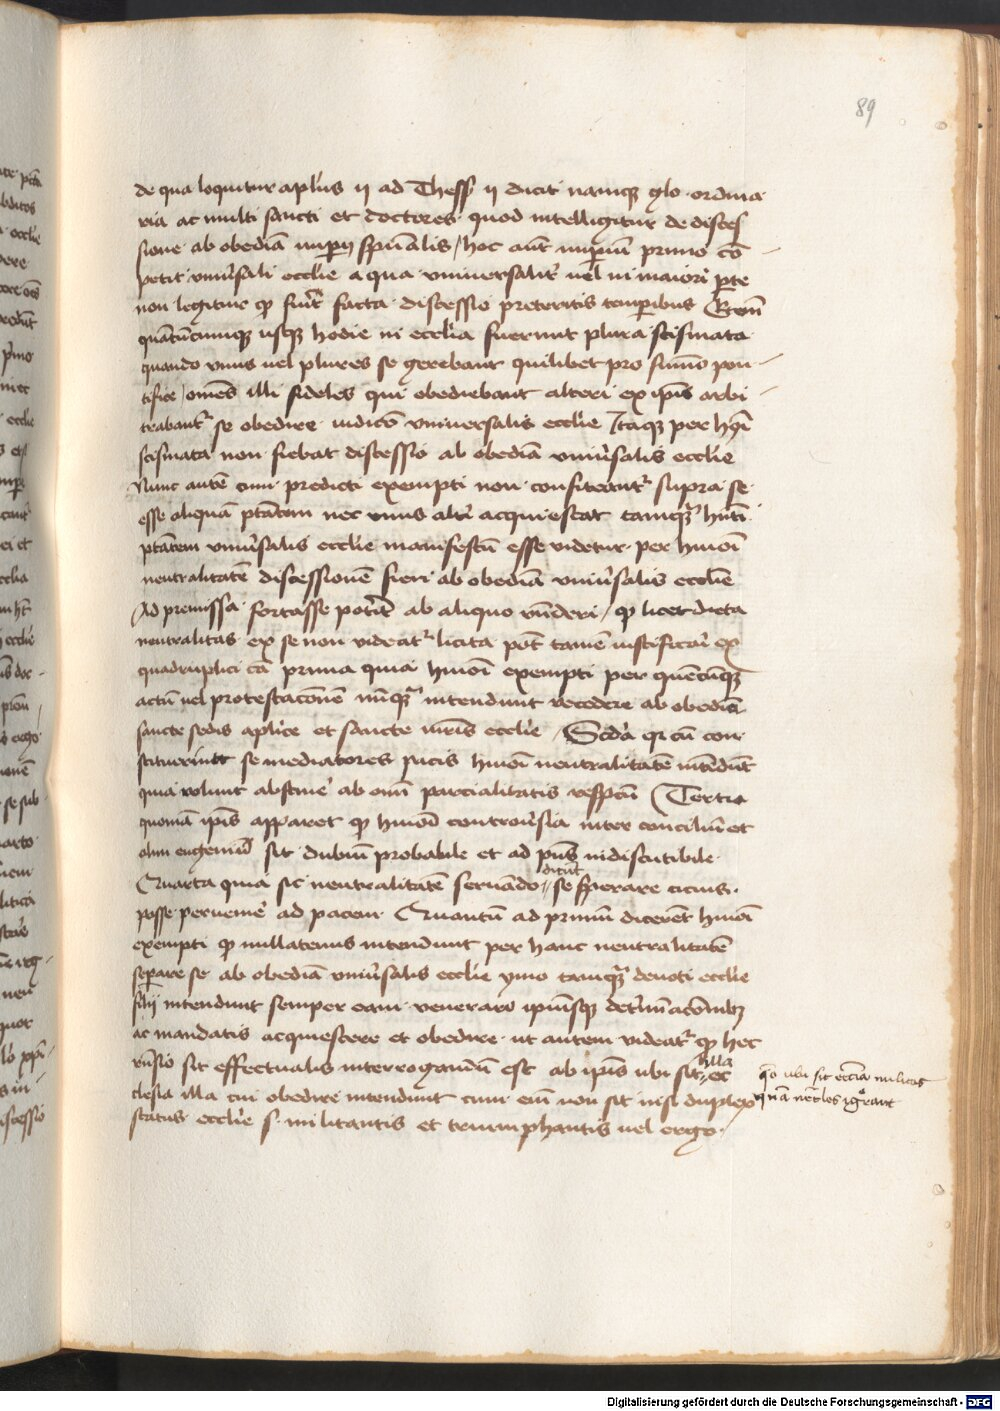 89
de qua loquitur aplus ij ad Thess ij dicit namque glo. ordina
ria ac multi sancti et doctores. quod intelligitur de disces
sione ab obedia imperij spualis / hoc aut imperiu primo co
petit uniusali ecclie a qua universalit uel in maiori pte
non legitur q fuit facta discessio preteritis temporibus
quatucumque usque hodie in ecclia fuerunt plura scismata
quando unus uel plures se gerebant quilibet pro summo pon
tifice / omes illi fideles qui obediebant alteri ex ipis arbi
trabant se obedire iudico universalis ecclie Itaque per hmoi
scismata non fiebat discessio ab obedia uniusalis ecclie
Nunc aute cum predicti exempti non confiteant supra se
esse aliqua ptatem nec unus alti acquiescat tamqua hnti
ptatem uniusalis ecclie manifestu esse videtur per hmoi
neutralitate discessione fieri ab obedia uniusalis ecclie
Ad premissa fortasse poterit ab aliquo rnderi / q licet dicta
neutralitas ex se non videat licita pot tame iustificari ex
quadruplici ca prima quia hmoi exempti per quecuque
actu uel protestacone nuqua intendunt recedere ab obedia
sancte sedis aplice et sancte mris ecclie / Scda qr cu con
stituerint se mediatores pacis hmoi neutralitate intendut
quia volunt abstine ab omi parcialitatis respectu Tertia
quonia ipis apparet q hmoi controusia inter conciliu et
olim eugeniu sit dubiu probabile et ad pns indiscutibile
Quarta quia sic neutralitate seruado dicut se sperare cicius
posse peruenire ad pacem Quantu ad primu diceret hmoi
exempti q nullatenus intendunt per hanc neutralitate
separare se ab obedia uniusalis ecclie ymo tamqua deuoti ecclie
filij intendunt semper eam venerari ipiusque determiacoibus
ac mandatis acquiescere et obedire ut autem videat q hec
rnsio sit effectualis interrogandu est ab ipis ubi sit illa ec
clesia illa cui obedire intendunt cum eni non sit nisi duplex
status ecclie s. militantis et triumphantis uel ergo
qo ubi sit ecclia militas
qua neutrales igrant
Digitalisierung gefördert durch die Deutsche Forschungsgemeinschaft - DFG